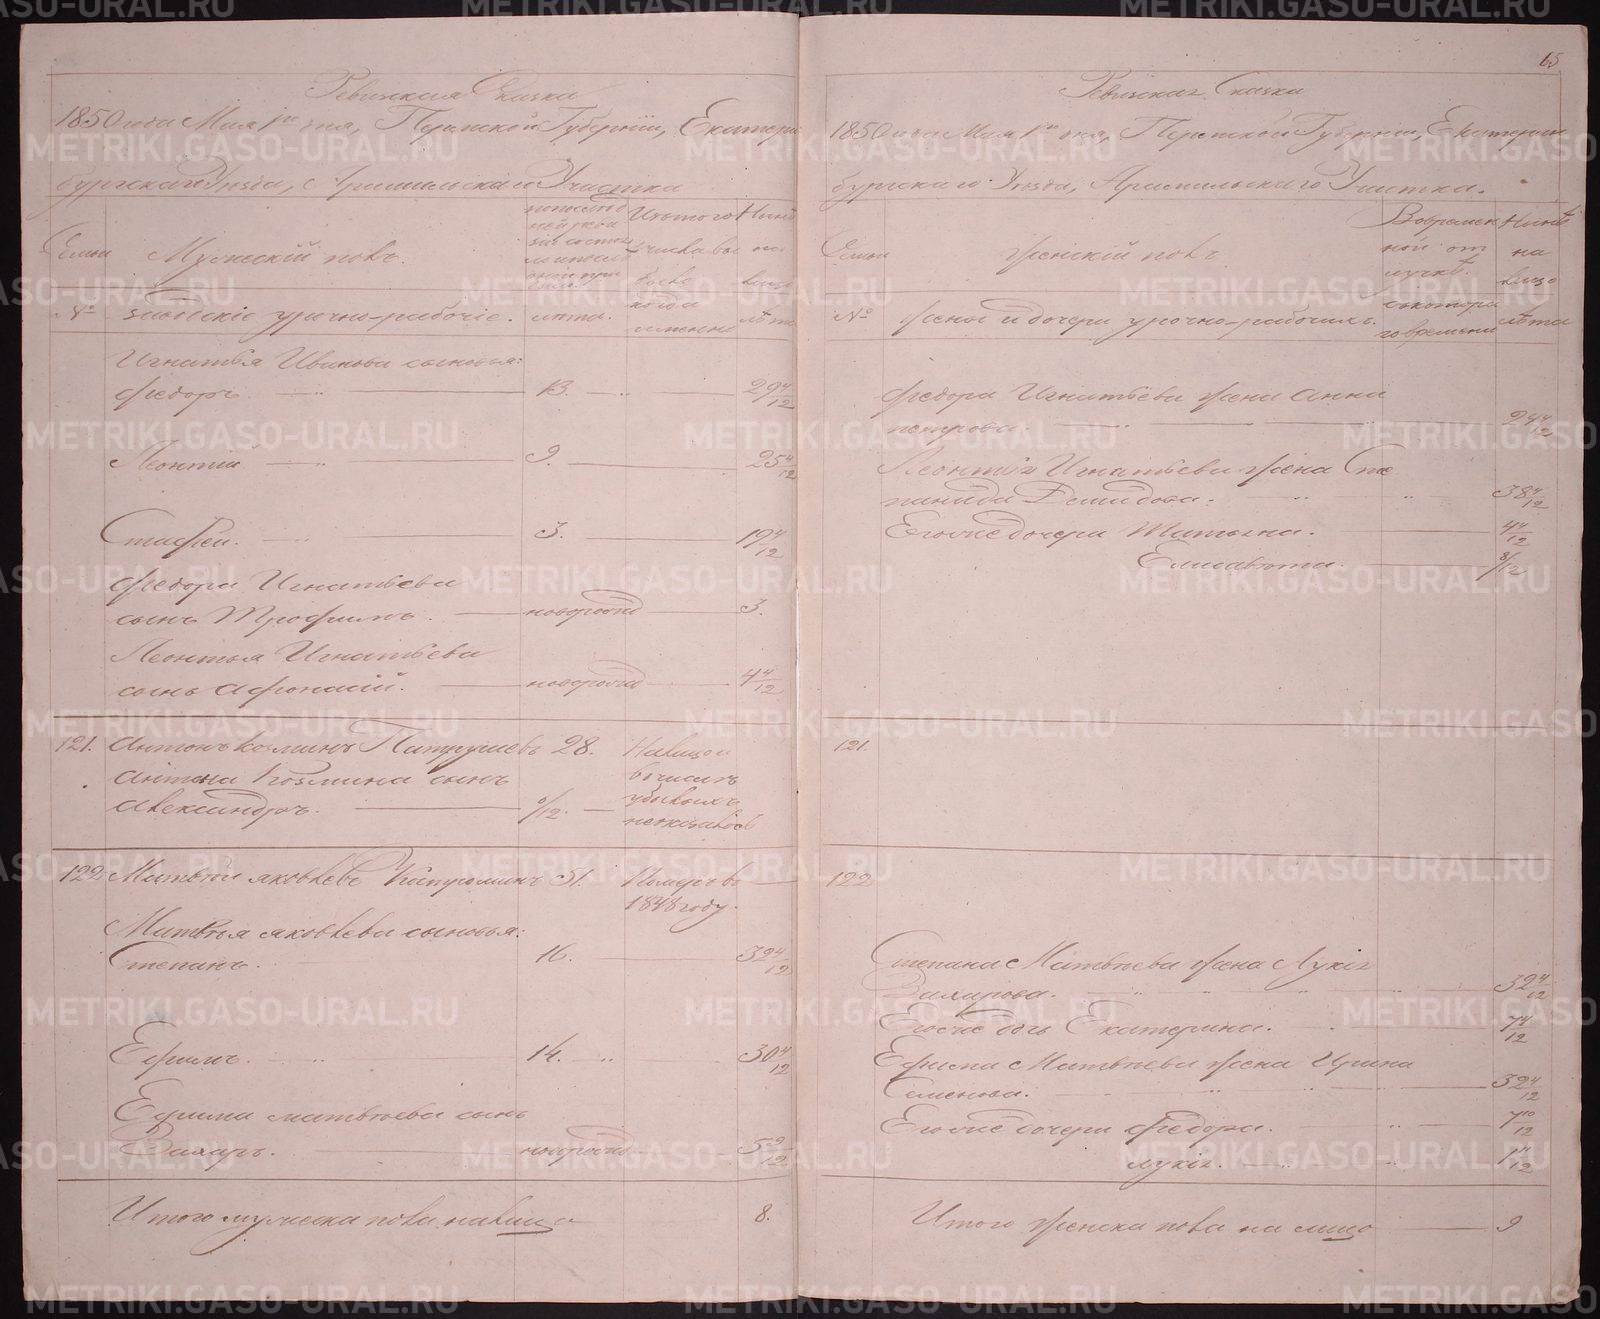 Ревизская Сказка
1850 года Мая 1го дня, Пермской Губернии, Екатерин
бургскаго Уезда, Арамильскаго Участка
Семьи
№
Мужескій полъ.
заводскіе урочно-рабочіе.
лета.
Изъ того
числа вы
было
когда
именно
Ныне
на
лицо
лета
Игнатья Иванова сыновья:
Федоръ. 13. 29 4/12
Леонтій 9. 25 4/12
Стафей. 3. 19 4/12
Федора Игнатьева
сынъ Трофимъ. новорожд 3.
Леонтья Игнатьева
сынъ Афонасій. новорожд 4 4/12
121. Антонъ Козминъ Патрушевъ 28.
Антона Козмина сынъ
Александръ.
122 Матвей Яковлевъ 51. Померъ въ
1848 году.
Матвея Яковлева сыновья:
Степанъ. 16. 32 4/12
Ефимъ. 14. 30 4/12
Ефима Матвеева сынъ
Захаръ. новорожд 5 9/12
Итого мужеска пола на лицо 8.
65
Ревизская Сказка
1850 года Мая 1го дня, Пермской Губерніи, Екатерин
бургскаго Уезда, Арамильскаго Участка.
Семьи
№
Женскій полъ
Жены и дочери урочно-рабочихъ.
Во времен
ной от
лучке.
съ котора
го времени
Ныне
на
лицо
лета
Федора Игнатьева жена Анна
петрова. 24 4/12
Леонтія Игнатьева жена Сте
панида Демидова. 38 4/12
Его же дочери Татьяна. 4 4/12
Елисавета. 8/12
121.
122
Степана Матвеева жена Лукія
Захарова. 32 4/12
Его же дочь Екатерина. 7 4/12
Ефима Матвеева жена Ирина
Семенова. 32 4/12
Его же дочери Федора. 7 10/12
Лукія.
Итого женска пола на лицо 9
METRIKI.GASO-URAL.RU